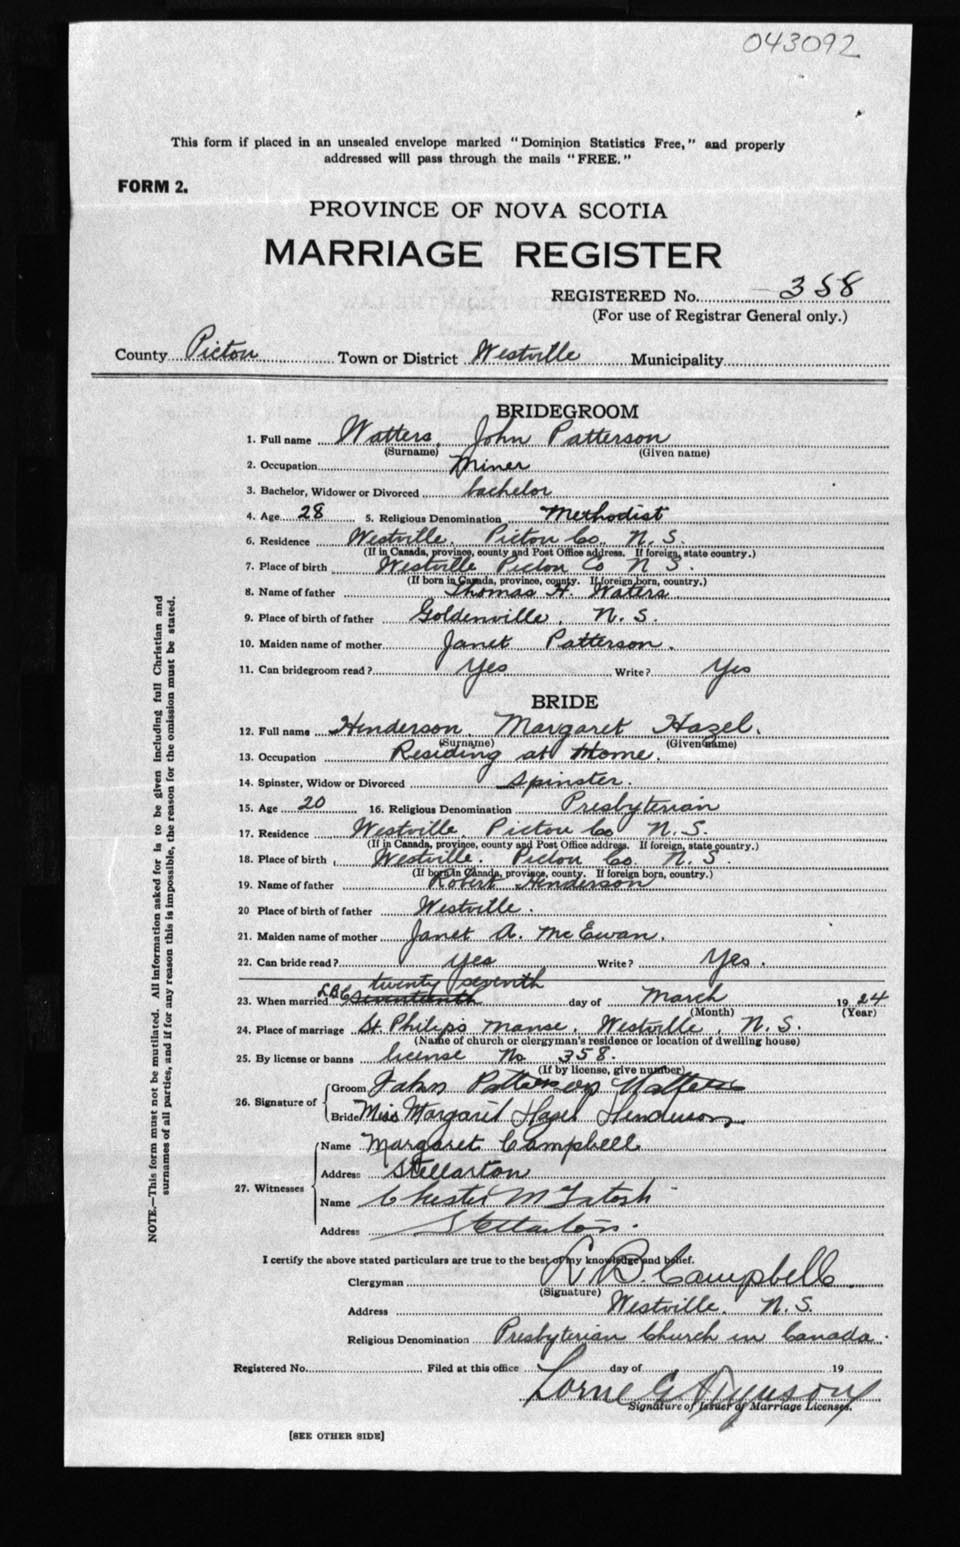 043092
This form if placed in an unsealed envelope marked "Dominion Statistics Free," and properly
addressed will pass through the mails "FREE."
FORM 2.
PROVINCE OF NOVA SCOTIA
MARRIAGE REGISTER
REGISTERED No. 358
(For use of Registrar General only.)
County Pictou Town or District Westville Municipality
BRIDEGROOM
1. Full name Watters, John Patterson
(Surname) (Given name)
2. Occupation Miner
3. Bachelor, Widower or Divorced bachelor
4. Age 28 5. Religious Denomination Methodist
6. Residence Westville, Pictou Co. N.S.
(If in Canada, province, county and Post Office address. If foreign, state country.)
7. Place of birth Westville Pictou Co N S.
(If born in Canada, province, county. If foreign born, country.)
8. Name of father Thomas H. Waters
9. Place of birth of father Goldenville, N.S.
10. Maiden name of mother Janet Patterson.
11. Can bridegroom read? Yes Write? Yes
BRIDE
12. Full name Henderson, Margaret Hazel.
(Surname) (Given name)
13. Occupation Residing at Home.
14. Spinster, Widow or Divorced Spinster.
15. Age 20 16. Religious Denomination Presbyterian
17. Residence Westville, Pictou Co N.S.
(If in Canada, province, county and Post Office address. If foreign, state country.)
18. Place of birth Westville. Pictou Co. N.S.
(If born in Canada, province, county. If foreign born, country.)
19. Name of father Robert Henderson
20 Place of birth of father Westville.
21. Maiden name of mother Janet A. McEwan.
22. Can bride read? Yes Write? Yes.
twenty seventh
23. When married LBC seventeenth day of March 1924
(Month) (Year)
24. Place of marriage St. Philip's Manse, Westville, N.S.
(Name of church or clergyman's residence or location of dwelling house)
25. By license or banns license No 358.
(If by license, give number)
26. Signature of
Groom John Patterson Watters
Bride Miss Margaret Hazel Henderson
27. Witnesses
Name Margaret Campbell
Address Stellarton
Name Chester McIntosh
Address Stellarton.
I certify the above stated particulars are true to the best of my knowledge and belief.
Clergyman L B. Campbell
(Signature)
Address Westville, N.S.
Religious Denomination Presbyterian Church in Canada.
Registered No. Filed at this office day of 19
Lorne G
Signature of Issuer of Marriage Licenses.
[SEE OTHER SIDE]
NOTE.—This form must not be mutilated. All information asked for is to be given including full Christian and
surnames of all parties, and if for any reason this is impossible, the reason for the omission must be stated.